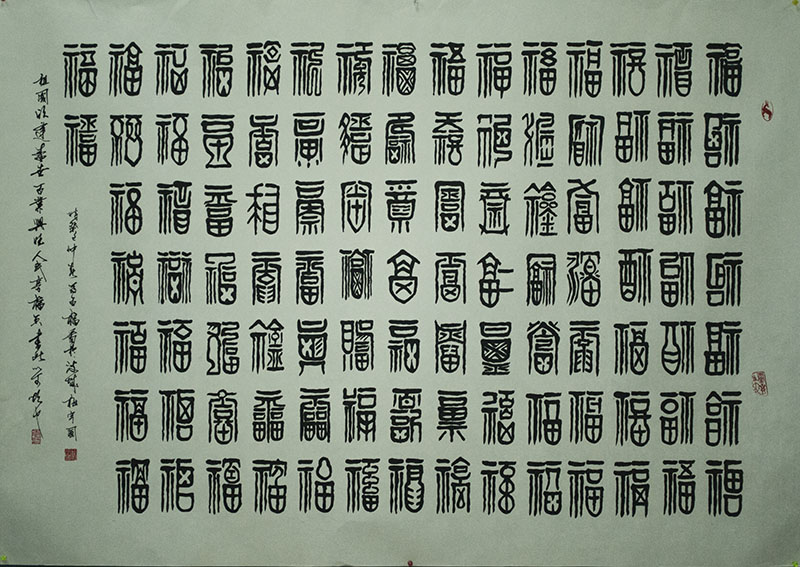 福福福福福福福
福福福福福福福
福福福福福福福
福福福福福福福
福福福福福福福
福福福福福福福
福福福福福福福
福福福福福福福
福福福福福福福
福福福福福福福
福福福福福福福
福福福福福福福
福福福福福福福
福福福福福福福
福福
祖國泰安百業興旺人民幸福
時癸巳仲夏百福